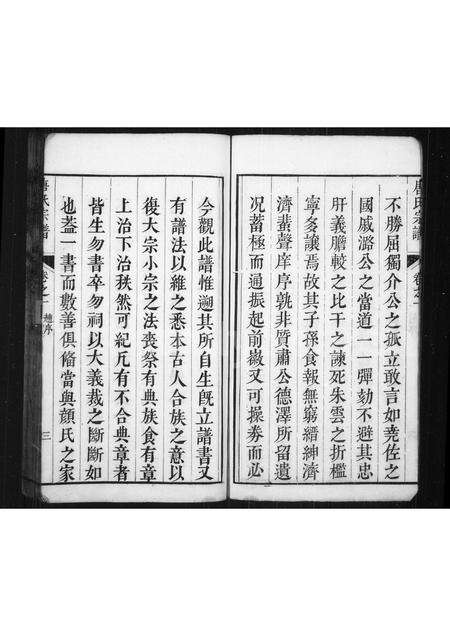 唐氏宗譜
卷之一
不勝屈獨介公之孤立敢言如堯佐之
國戚潞公之當道一一彈劾不避其忠
肝義膽較之比干之諫死朱雲之折檻
寧多讓焉故其子孫食報無窮縉紳濟
濟蜚聲庠序孰非質肅公德澤所留遺
况蓄極而通振起前徽又可操券而必
今觀此譜惟遡其所自生旣立譜書又
有譜法以維之悉本古人合族之意以
復大宗小宗之法喪祭有典族食有章
上治下治秩然可紀凢有不合典章者
皆生勿書卒勿祠以大義裁之斷斷如
也葢一書而數善俱備當與顏氏之家
唐氏宗譜
卷之一
趙序
三